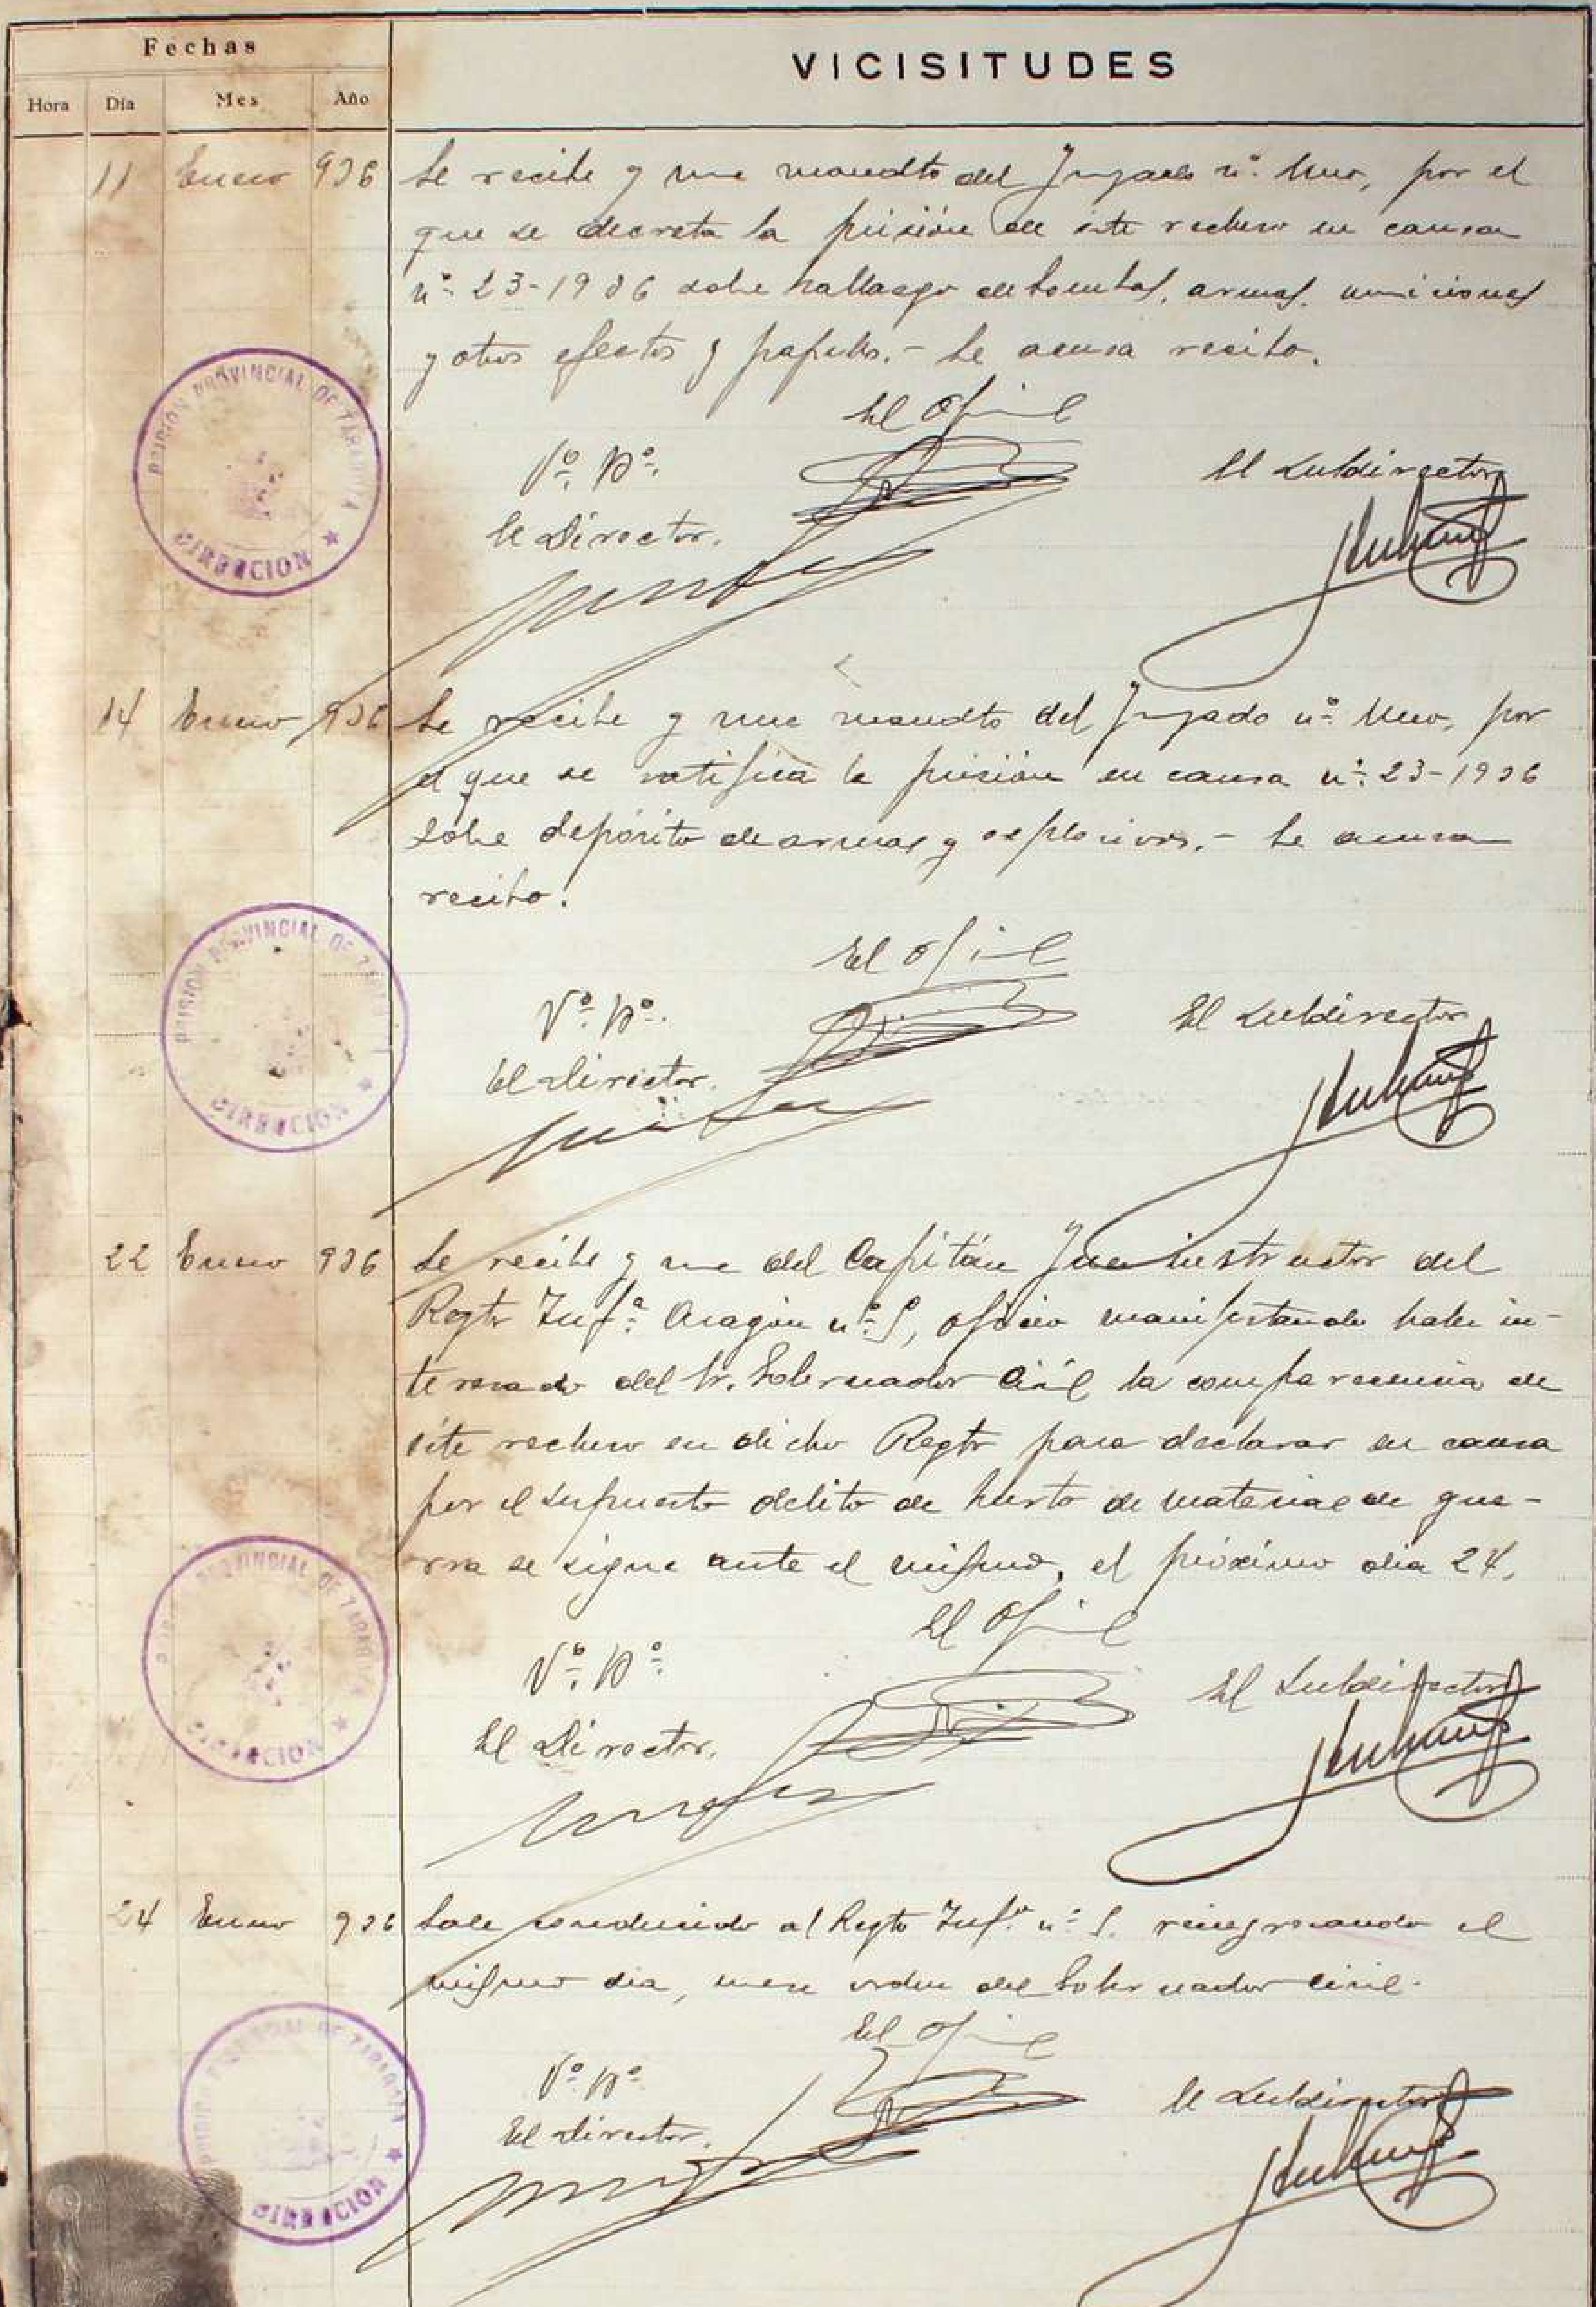 Fechas
VICISITUDES
Hora Día Mes Año
11 Enero 936 Se recibe y une mandtº del Juzgado nº Uno, por el
que se decreta la prisión de este recluso en causa
nº 23-1936 sobre hallazgo de bombas, armas, municiones
y otros efectos y papeles.- Se acusa recibo.
El Ofical
Vº Bº
El Subdirector
El Director.
PRISION PROVINCIAL DE ZARAGOZA
DIRECCION
14 Enero 936 Se recibe y une mandtº del Juzgado nº Uno, por
el que se ratifica la prisión en causa nº 23-1936
sobre depósito de armas y explosivos.- Se acusa
recibo.
El Ofical
Vº Bº
El Subdirector
El Director.
PRISION PROVINCIAL DE ZARAGOZA
DIRECCION
22 Enero 936 Se recibe y une del Capitán Juez instructor del
Regtº Infª Aragón nº 5, oficio manifestando haber in-
teresado del Sr. Gobernador Civil la comparecencia de
este recluso en dicho Regtº para declarar en causa
por el supuesto delito de hurto de material de gue-
rra se sigue ante el mismo, el próximo día 24.
El Ofical
Vº Bº
El Subdirector
El Director.
PRISION PROVINCIAL DE ZARAGOZA
DIRECCION
24 Enero 936 Sale conducido al Regtº Infª nº 5. reingresando el
mismo día, orden del Gobernador Civil.
El Ofical
Vº Bº
El Subdirector
El Director.
PRISION PROVINCIAL DE ZARAGOZA
DIRECCION